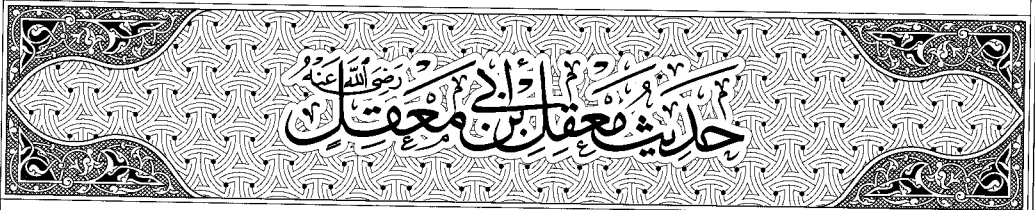 حَدِيثُ مَعْقِلِ بْنِ أَبِي مَعْقِلٍ رَضِيَ اللَّهُ عَنْهُ